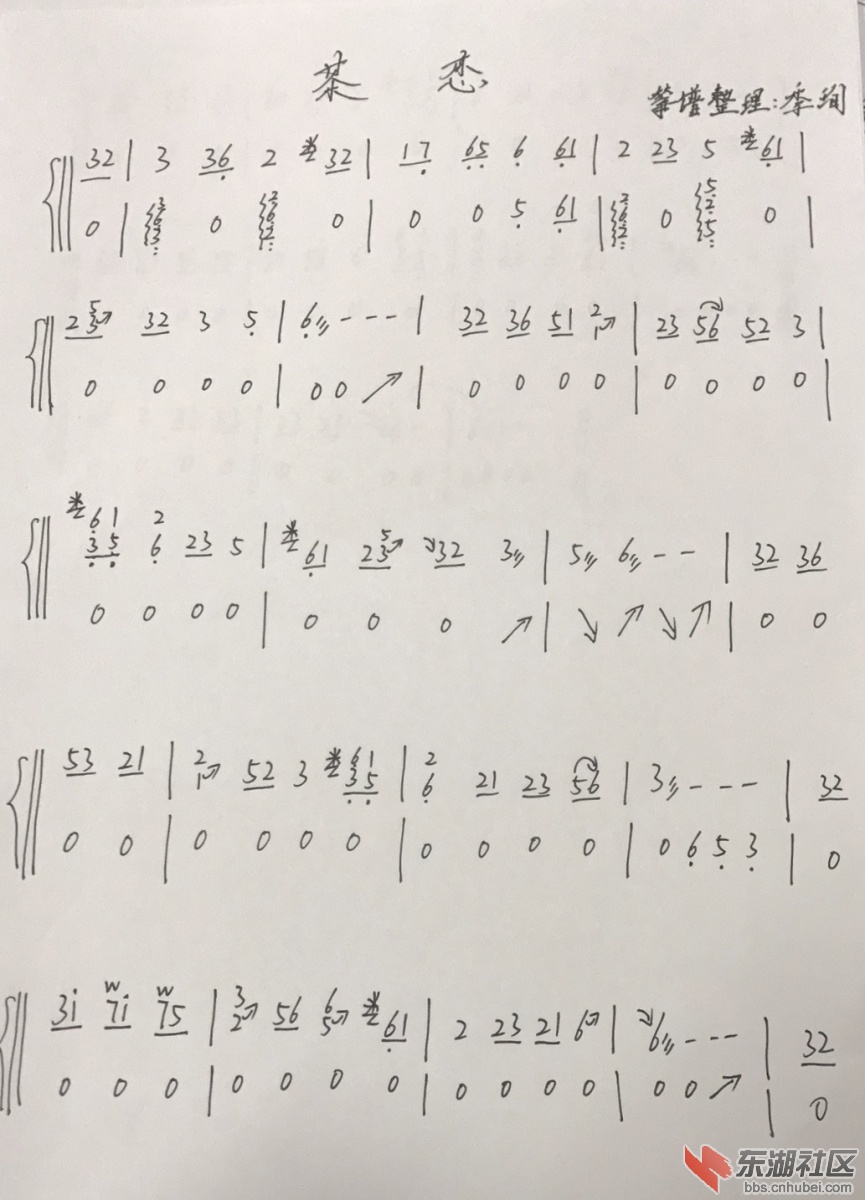 茶 恋
筝谱整理:季绚
32 | 3 36 2 32 | 17 65 6 61 | 2 23 5 61 |
0 | 0 0 | 0 0 5 61 | 0 0 |
23 32 3 5 | 6 - - - | 32 36 51 | 23 56 52 3 |
0 0 0 0 | 0 0 ↗ | 0 0 0 0 | 0 0 0 0 |
61 2
35 6 23 5 | 61 23 32 3 | 5 6 - - | 32 36
0 0 0 0 | 0 0 0 ↗ | ↘ ↗ ↘ ↗ | 0 0
53 21 | 52 3 | 21 23 56 | 3 - - - | 32
0 0 | 0 0 0 0 | 0 0 0 0 | 0 6 5 3 | 0
3i 7i 75 | 56 61 | 2 23 21 6 | 6 - - - | 32
0 0 0 | 0 0 0 0 | 0 0 0 0 | 0 0 ↗ | 0
东湖社区
bbs.cnhubei.com